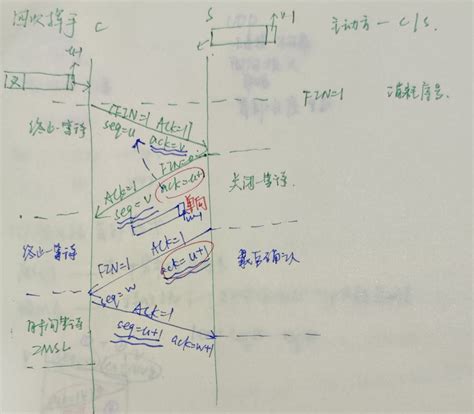 四次挥手 C S 主动方 — C/S.
u-1 v-1
FIN=1 消耗序号
FIN=1 ACK=1
seq=u
ack=v
终止-等待
ACK=1
ack=u+1
seq=v
关闭-等待
单向
终止-等待
ACK=1
FIN=1
ack=u+1
最后确认
seq=w
ACK=1
时间等待
seq=u+1 ack=w+1
2MSL